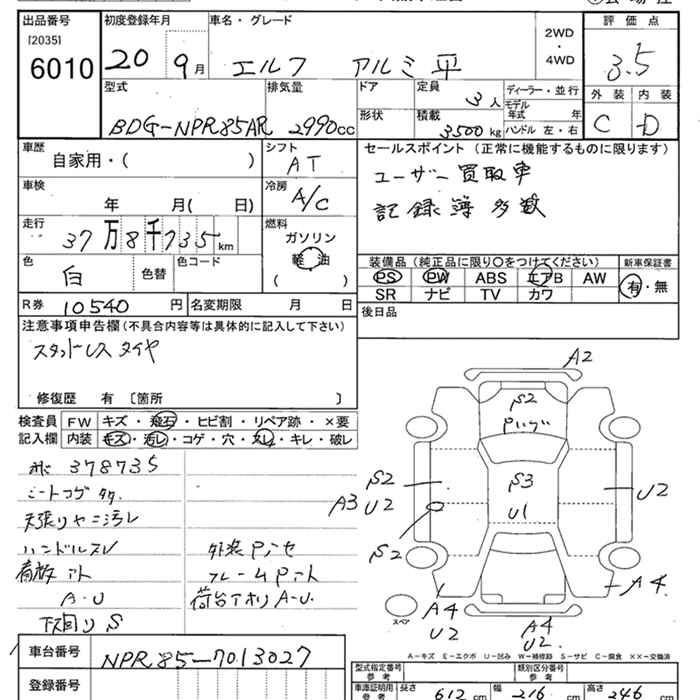 出品番号 初度登録年月 車名・グレード 評価点
[2035] 2WD
6010 20 9月 エルフ アルミ平 ・ 3.5
4WD
型式 排気量 ドア 定員 3人 ディーラー・並行 外装 内装
モデル年式 年
BDG-NPR85AR 2990cc 形状 積載 3500kg ハンドル 左・右 C D
車歴 自家用・( ) シフト AT セールスポイント (正常に機能するものに限ります)
ユーザー買取車
車検 年 月( 日) 冷房 A/C 記録簿多数
走行 37万8千735km 燃料 ガソリン
軽油
( )
色 白 色替 色コード 装備品(純正品に限り○をつけてください) 新車保証書
PS PW ABS エアB AW 有・無
SR ナビ TV カワ
R券 10540円 名変期限 月 日 後日品
注意事項申告欄(不具合内容等は具体的に記入して下さい)
スタットレスタイヤ
修復歴 有〔箇所 〕
検査員 FW キズ・飛石・ヒビ割・リペア跡・×要
記入欄 内装 キズ・汚レ・コゲ・穴・スレ・キレ・破レ
378735
シートコゲ
天張りヤニ汚レ
ハンドルスレ
看板アト
A・U
下回りS
外装Pハセ
フレームPアト
荷台アオリA・U.
A2
S2
S3
U1
S2
A3 U2
S2
U2
A4
A4
U2
A4
U2.
スペア
A-キズ E-エクボ U-凹み W-補修跡 S-サビ C-腐食 ××-交換済
車台番号 NPR85-7013027
登録番号
型式指定番号 参考 類別区分番号 参考
車庫証明用・参考 長さ 612cm 幅 216cm 高さ 246cm